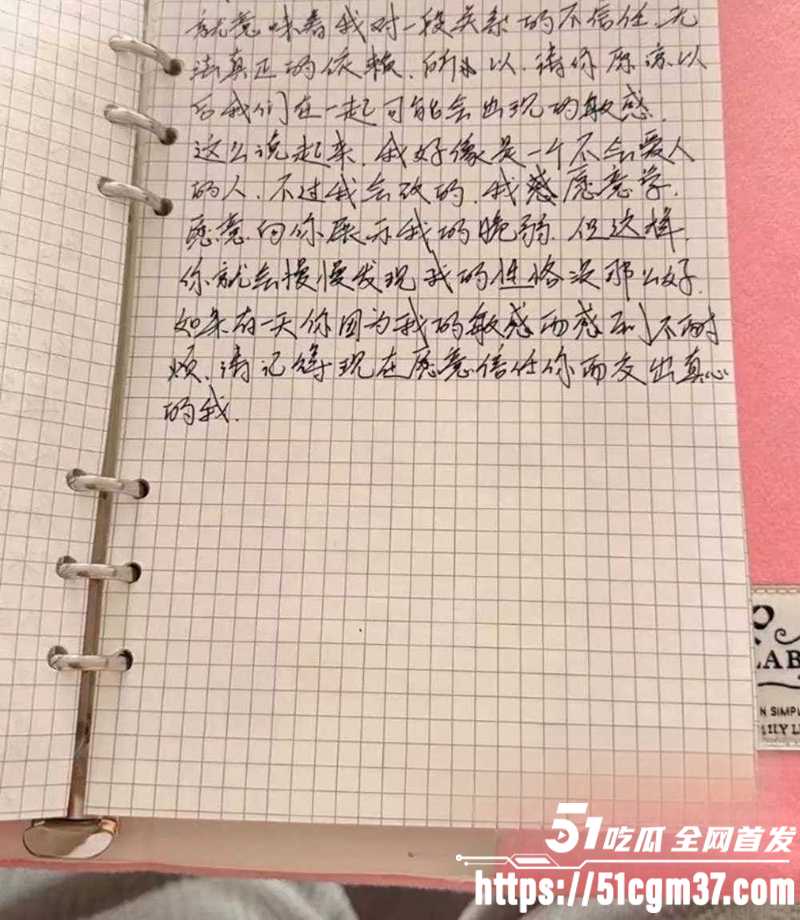 就意味着我对一段关系的不信任、无
法真正的依赖、所以、请你原谅以
后我们在一起可能会出现的敏感.
这么说起来、我好像是一个不会爱人
的人、不过我会改的、我愿意学、
愿意向你展示我的脆弱、但这样、
你就会慢慢发现、我的性格没那么好.
如果有一天你因为我的敏感而感到不耐
烦、请记得现在愿意信任你而交出真心
的我.
LAB
N SIMPL
LILY L
51吃瓜 全网首发
https://51cgm37.com